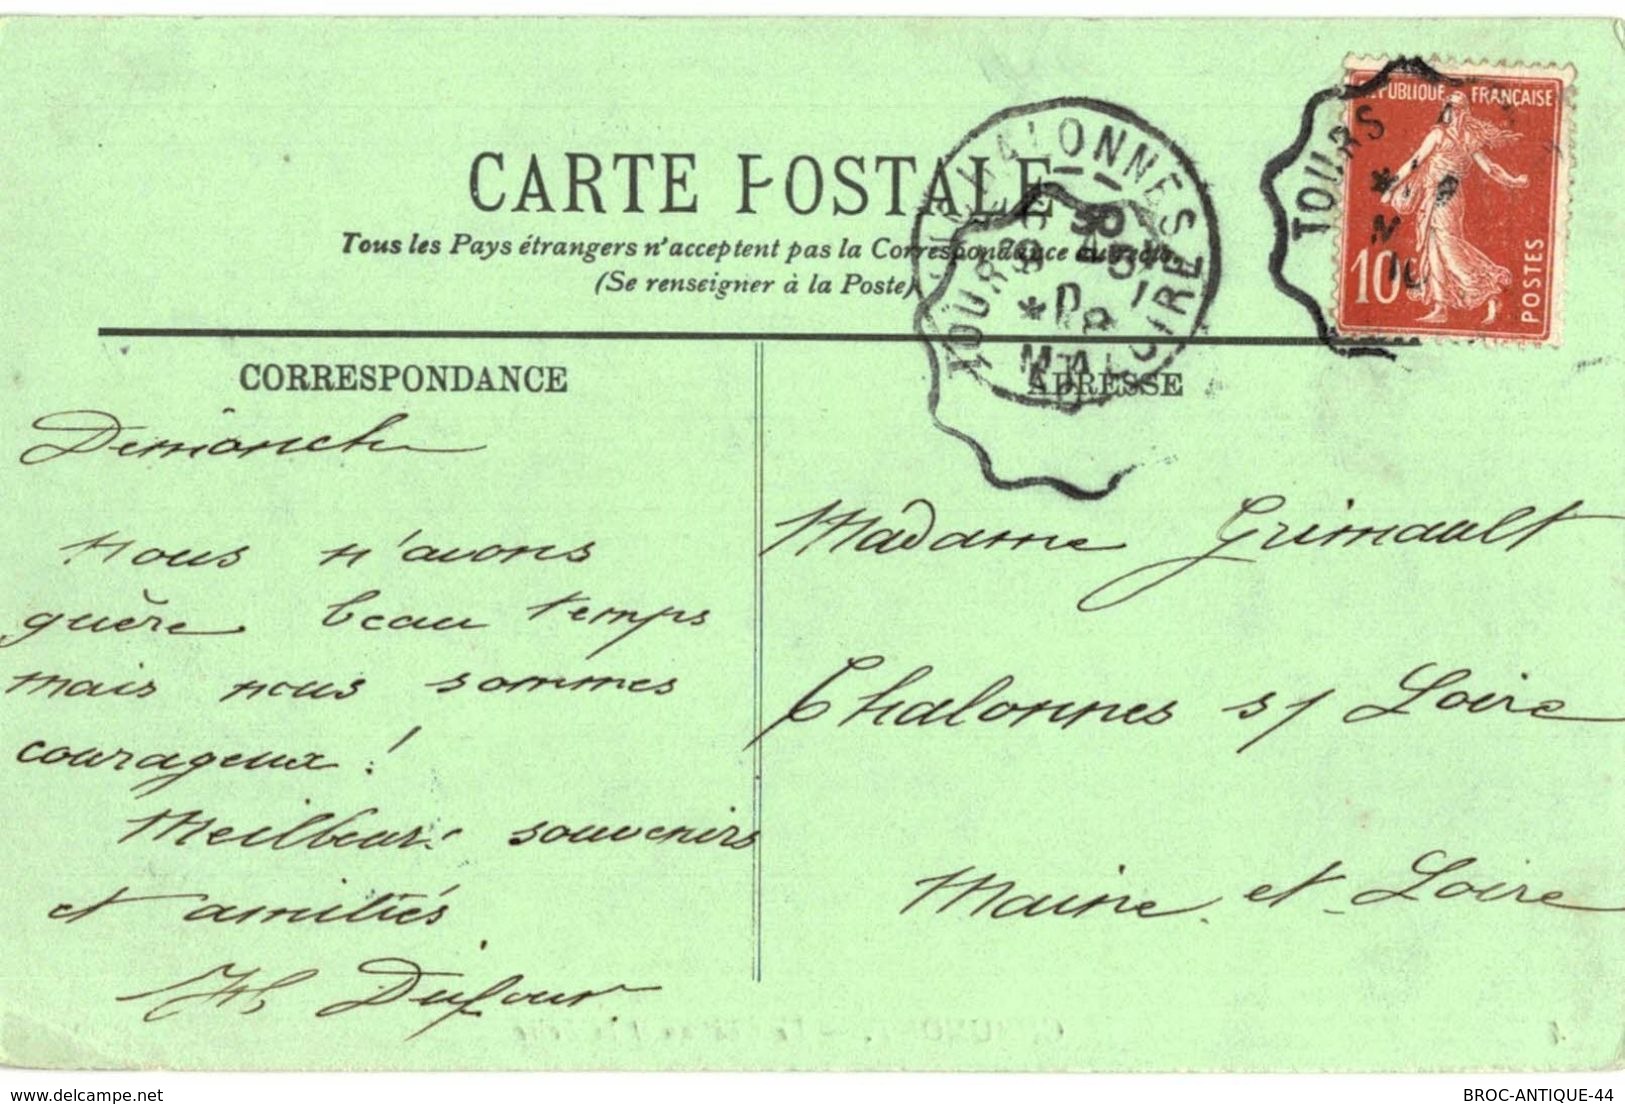 CARTE POSTALE
Tous les Pays étrangers n'acceptent pas la Correspondance au recto.
(Se renseigner à la Poste)
RÉPUBLIQUE FRANÇAISE
10c
POSTES
TOURS
CHALONNES
LOIRE
TOURS
CORRESPONDANCE
ADRESSE
Dimanche
Nous n'avons
guère beau temps
mais nous sommes
courageux !
Meilleurs souvenirs
et amitiés
Dufour
Madame Grimault
Chalonnes s/ Loire
Maine et Loire
BROC-ANTIQUE-44